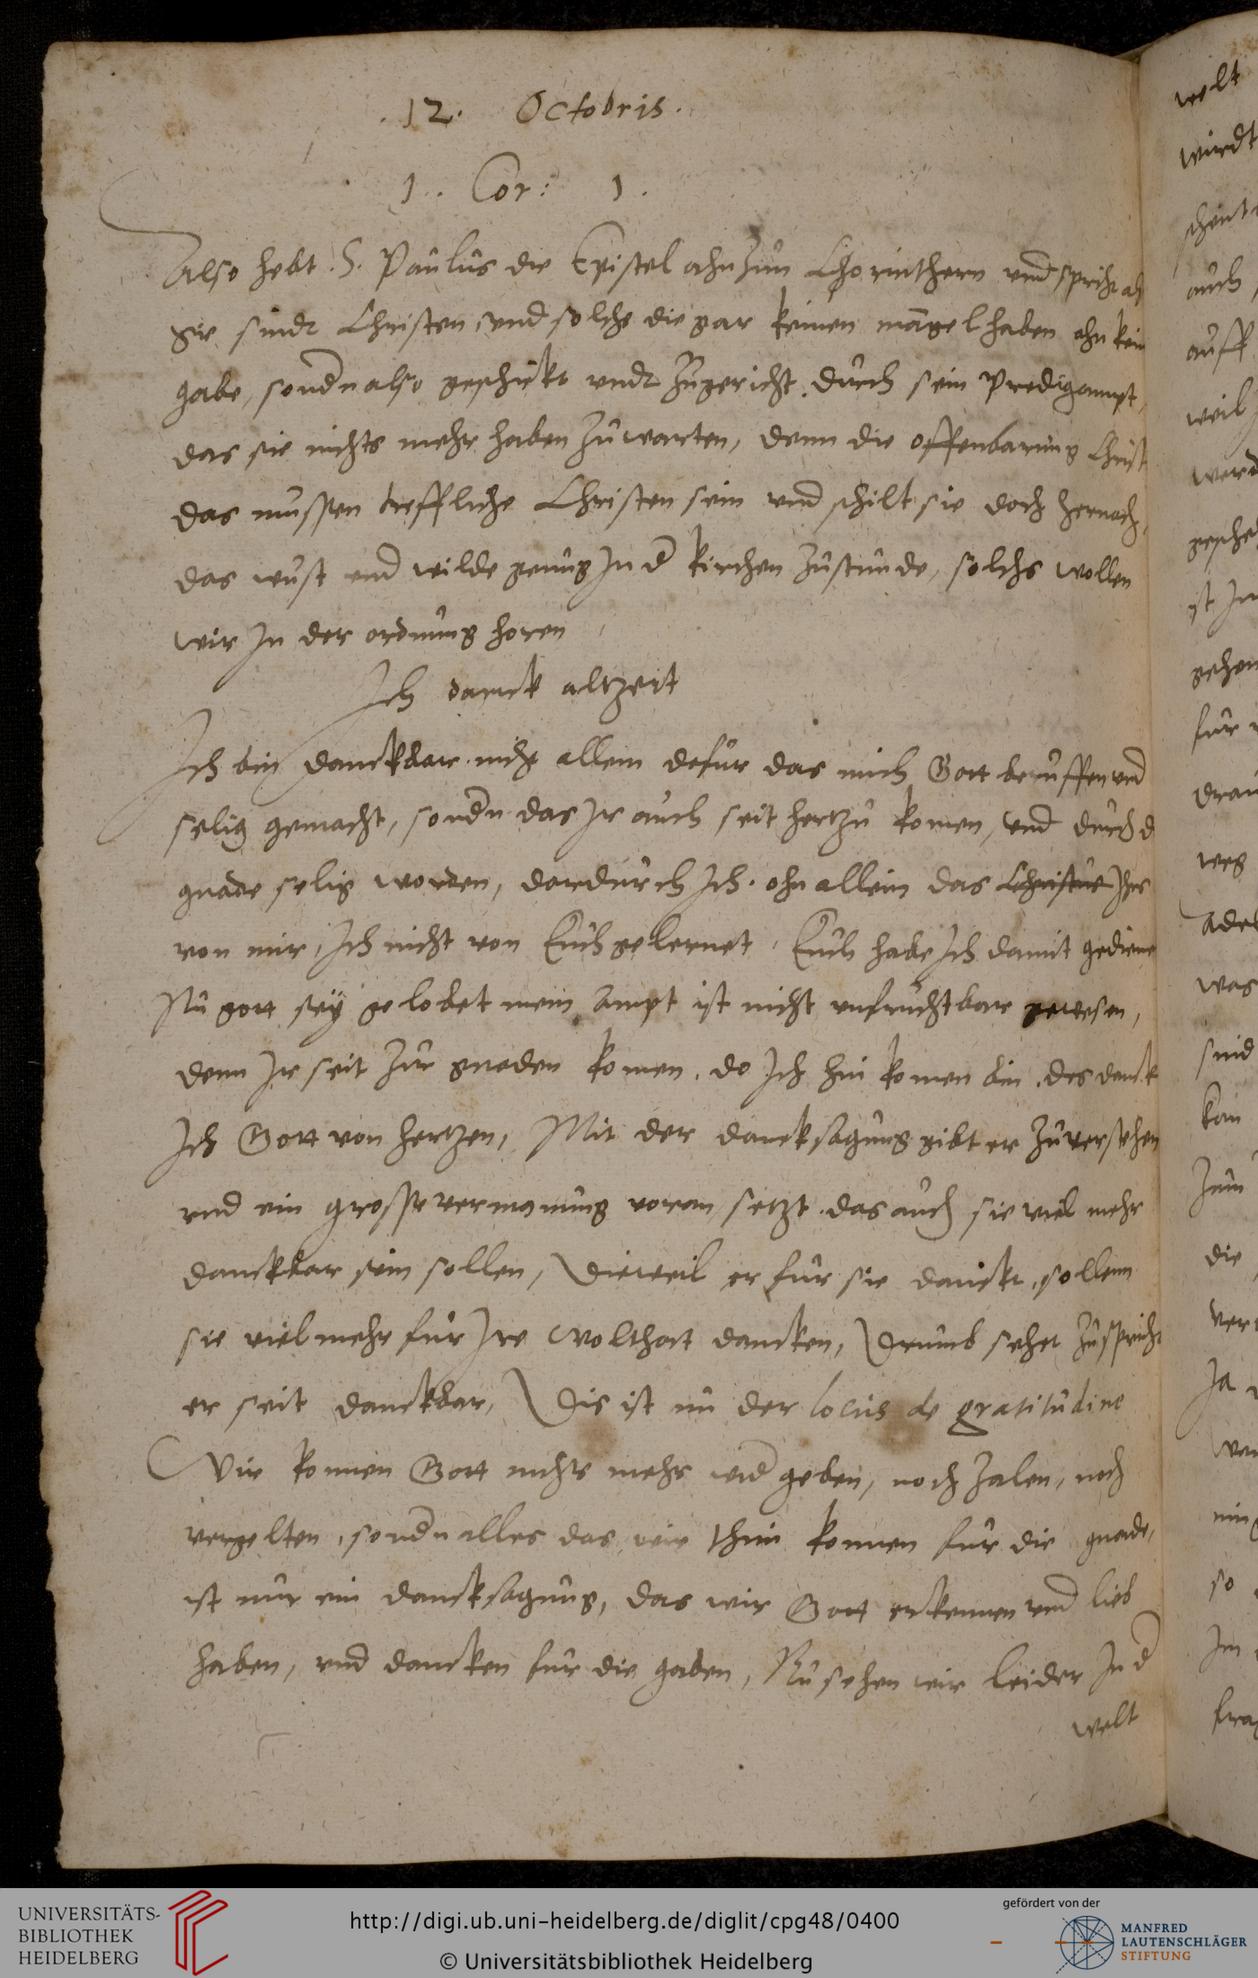 .12. Octobris.
1. Cor: 1.
Also hebt S. Paulus die Epistel ahn zun Chorinthern und spricht
Sie sindt Christen, und solche die gar keinen mangel haben ahn kein
gabe, sondn also geschickt undt zugericht durch sein Predigampt,
das sie nichts mehr haben zu warten, denn die offenbarung Christ
das mussen treffliche Christen sein und schilt sie doch hernach,
das wust und wilde genug In d kirchen zustunde, solchs wollen
wir In der ordnung horen
Ich danck altzeit
Ich bin danckbar nicht allein dafur das mich Gott beruffen und
selig gemacht, sondn das Ir auch seit hertzu komen, und durch d
gnade selig worden, dardurch Ich. ohn allein das Ihrs
von mir, Ich nicht von Euch gelernet, Euch habe Ich damit gedienet
Nu gott sey gelobet mein Ampt ist nicht unfruchtbar gewesen,
denn Ir seit zur gnaden komen, do Ich hin komen bin, des danck
Ich Gott von hertzen, Mit der dancksagung gibt er zuverstehen
und ein grosse vermanung voran setzt das auch sie viel mehr
danckbar sein sollen, Dieweil er fur sie danckt, sollenn
sie vielmehr fur Ire wolthat dancken, Drumb sehet zu spricht
er seit danckbar, Dis ist nu der locus de gratitudine
Wir konnen Gott nichts mehr wid geben, noch zalen, noch
vergelten, sondn alles das wir thun konnen fur die gnade,
ist nur ein dancksagung, das wir Gott erkennen und lieb
haben, und dancken fur die gaben, Nu sehen wir leider In d
welt
welt
wurdt
scheint
auch
auff
weil
werd
gesche
ist In
gehen
fur
drau
weg
Adel
was
sind
kan
die
ver
Ja
so
Im
fra
UNIVERSITÄTS-
BIBLIOTHEK
HEIDELBERG
http://digi.ub.uni-heidelberg.de/diglit/cpg48/0400
© Universitätsbibliothek Heidelberg
gefördert von der
MANFRED
LAUTENSCHLÄGER
STIFTUNG